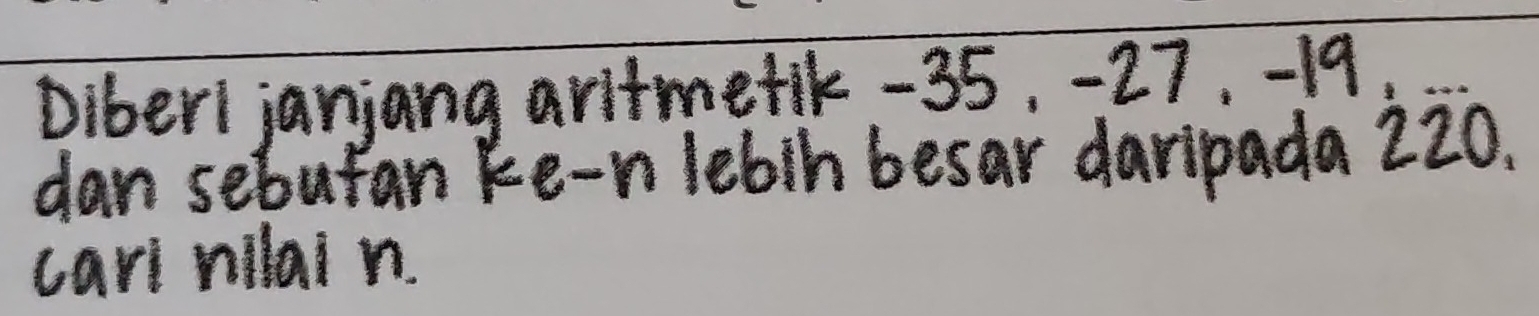 Diberi janjang aritmetik -35, -27, -19, ...
dan sebutan ke-n lebih besar daripada 220.
cari nilai n.